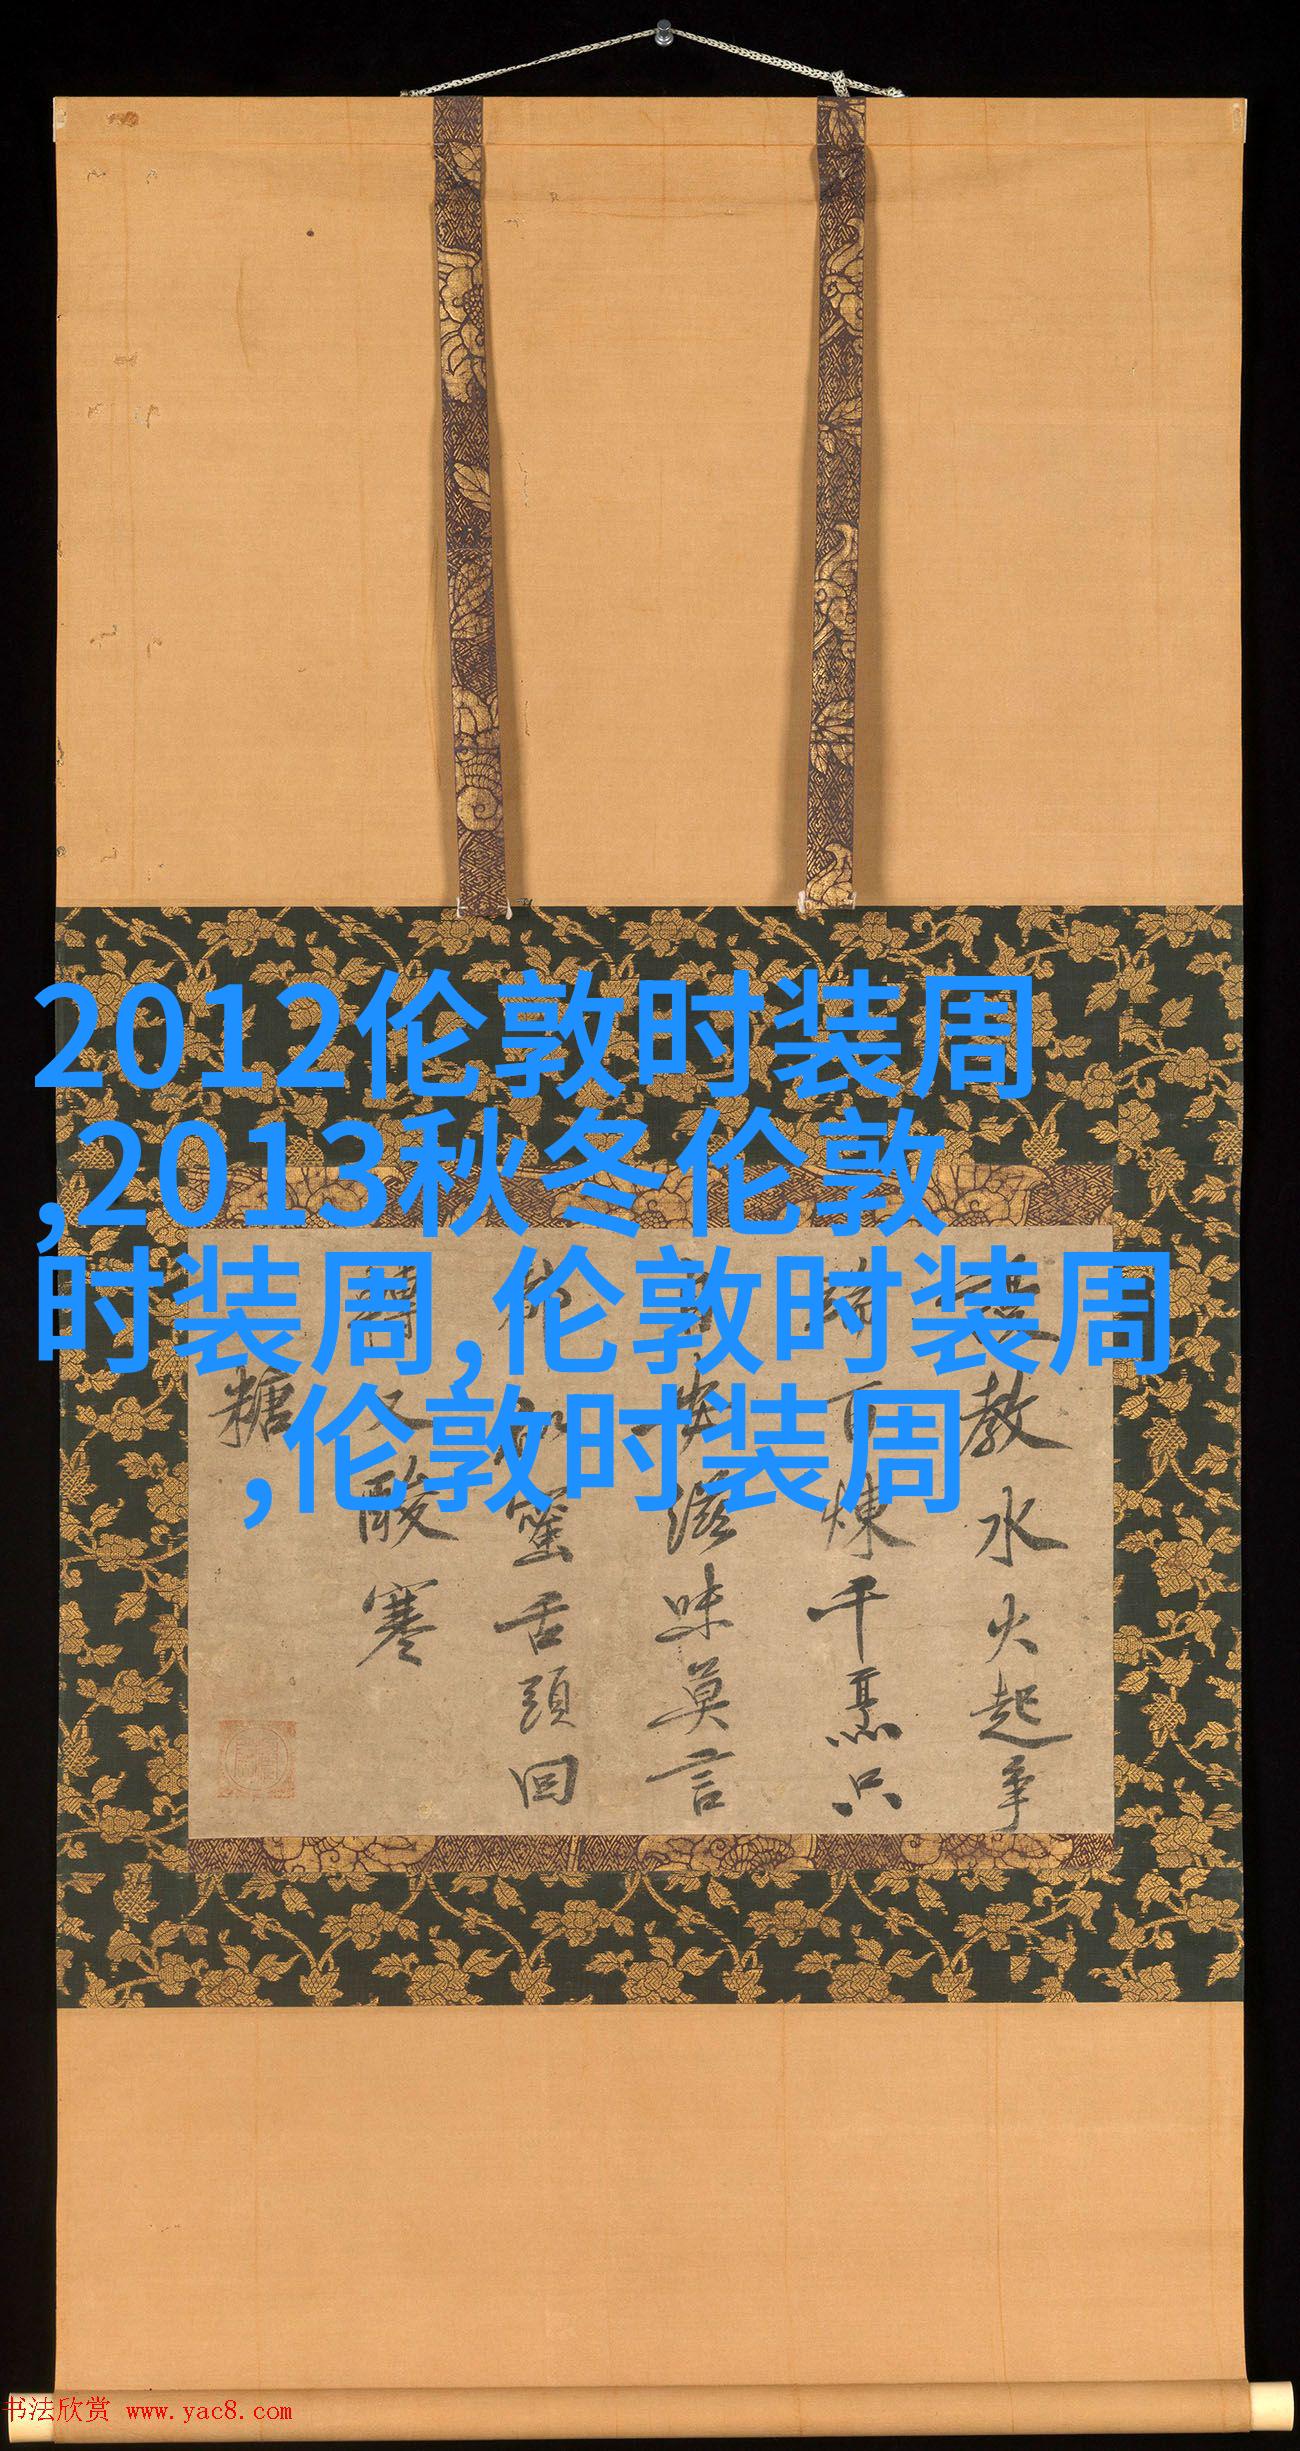 2012伦敦时装周
,2013秋冬伦敦
时装周,伦敦时装周
,伦敦时装周
教水火起爭
百煉千烹只
滋味莫言
蜜舌頭回
轉又酸寒
糖
书法欣赏 www.yac8.com